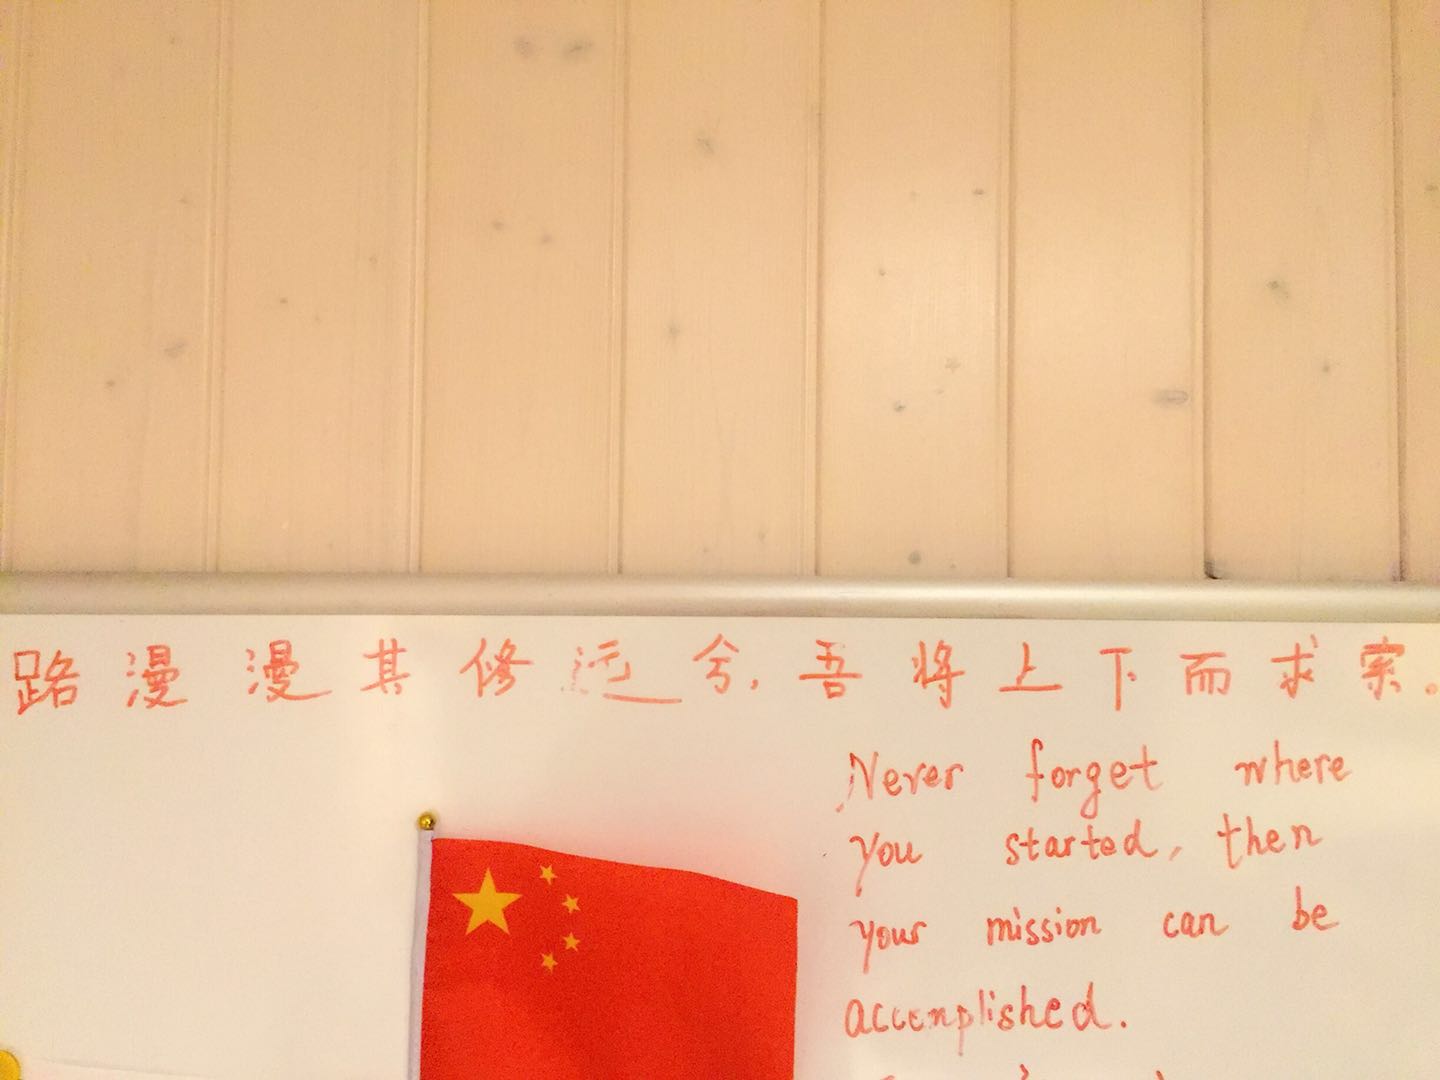 路漫漫其修远兮,吾将上下而求索。
Never forget where
you started, then
your mission can be
accomplished.